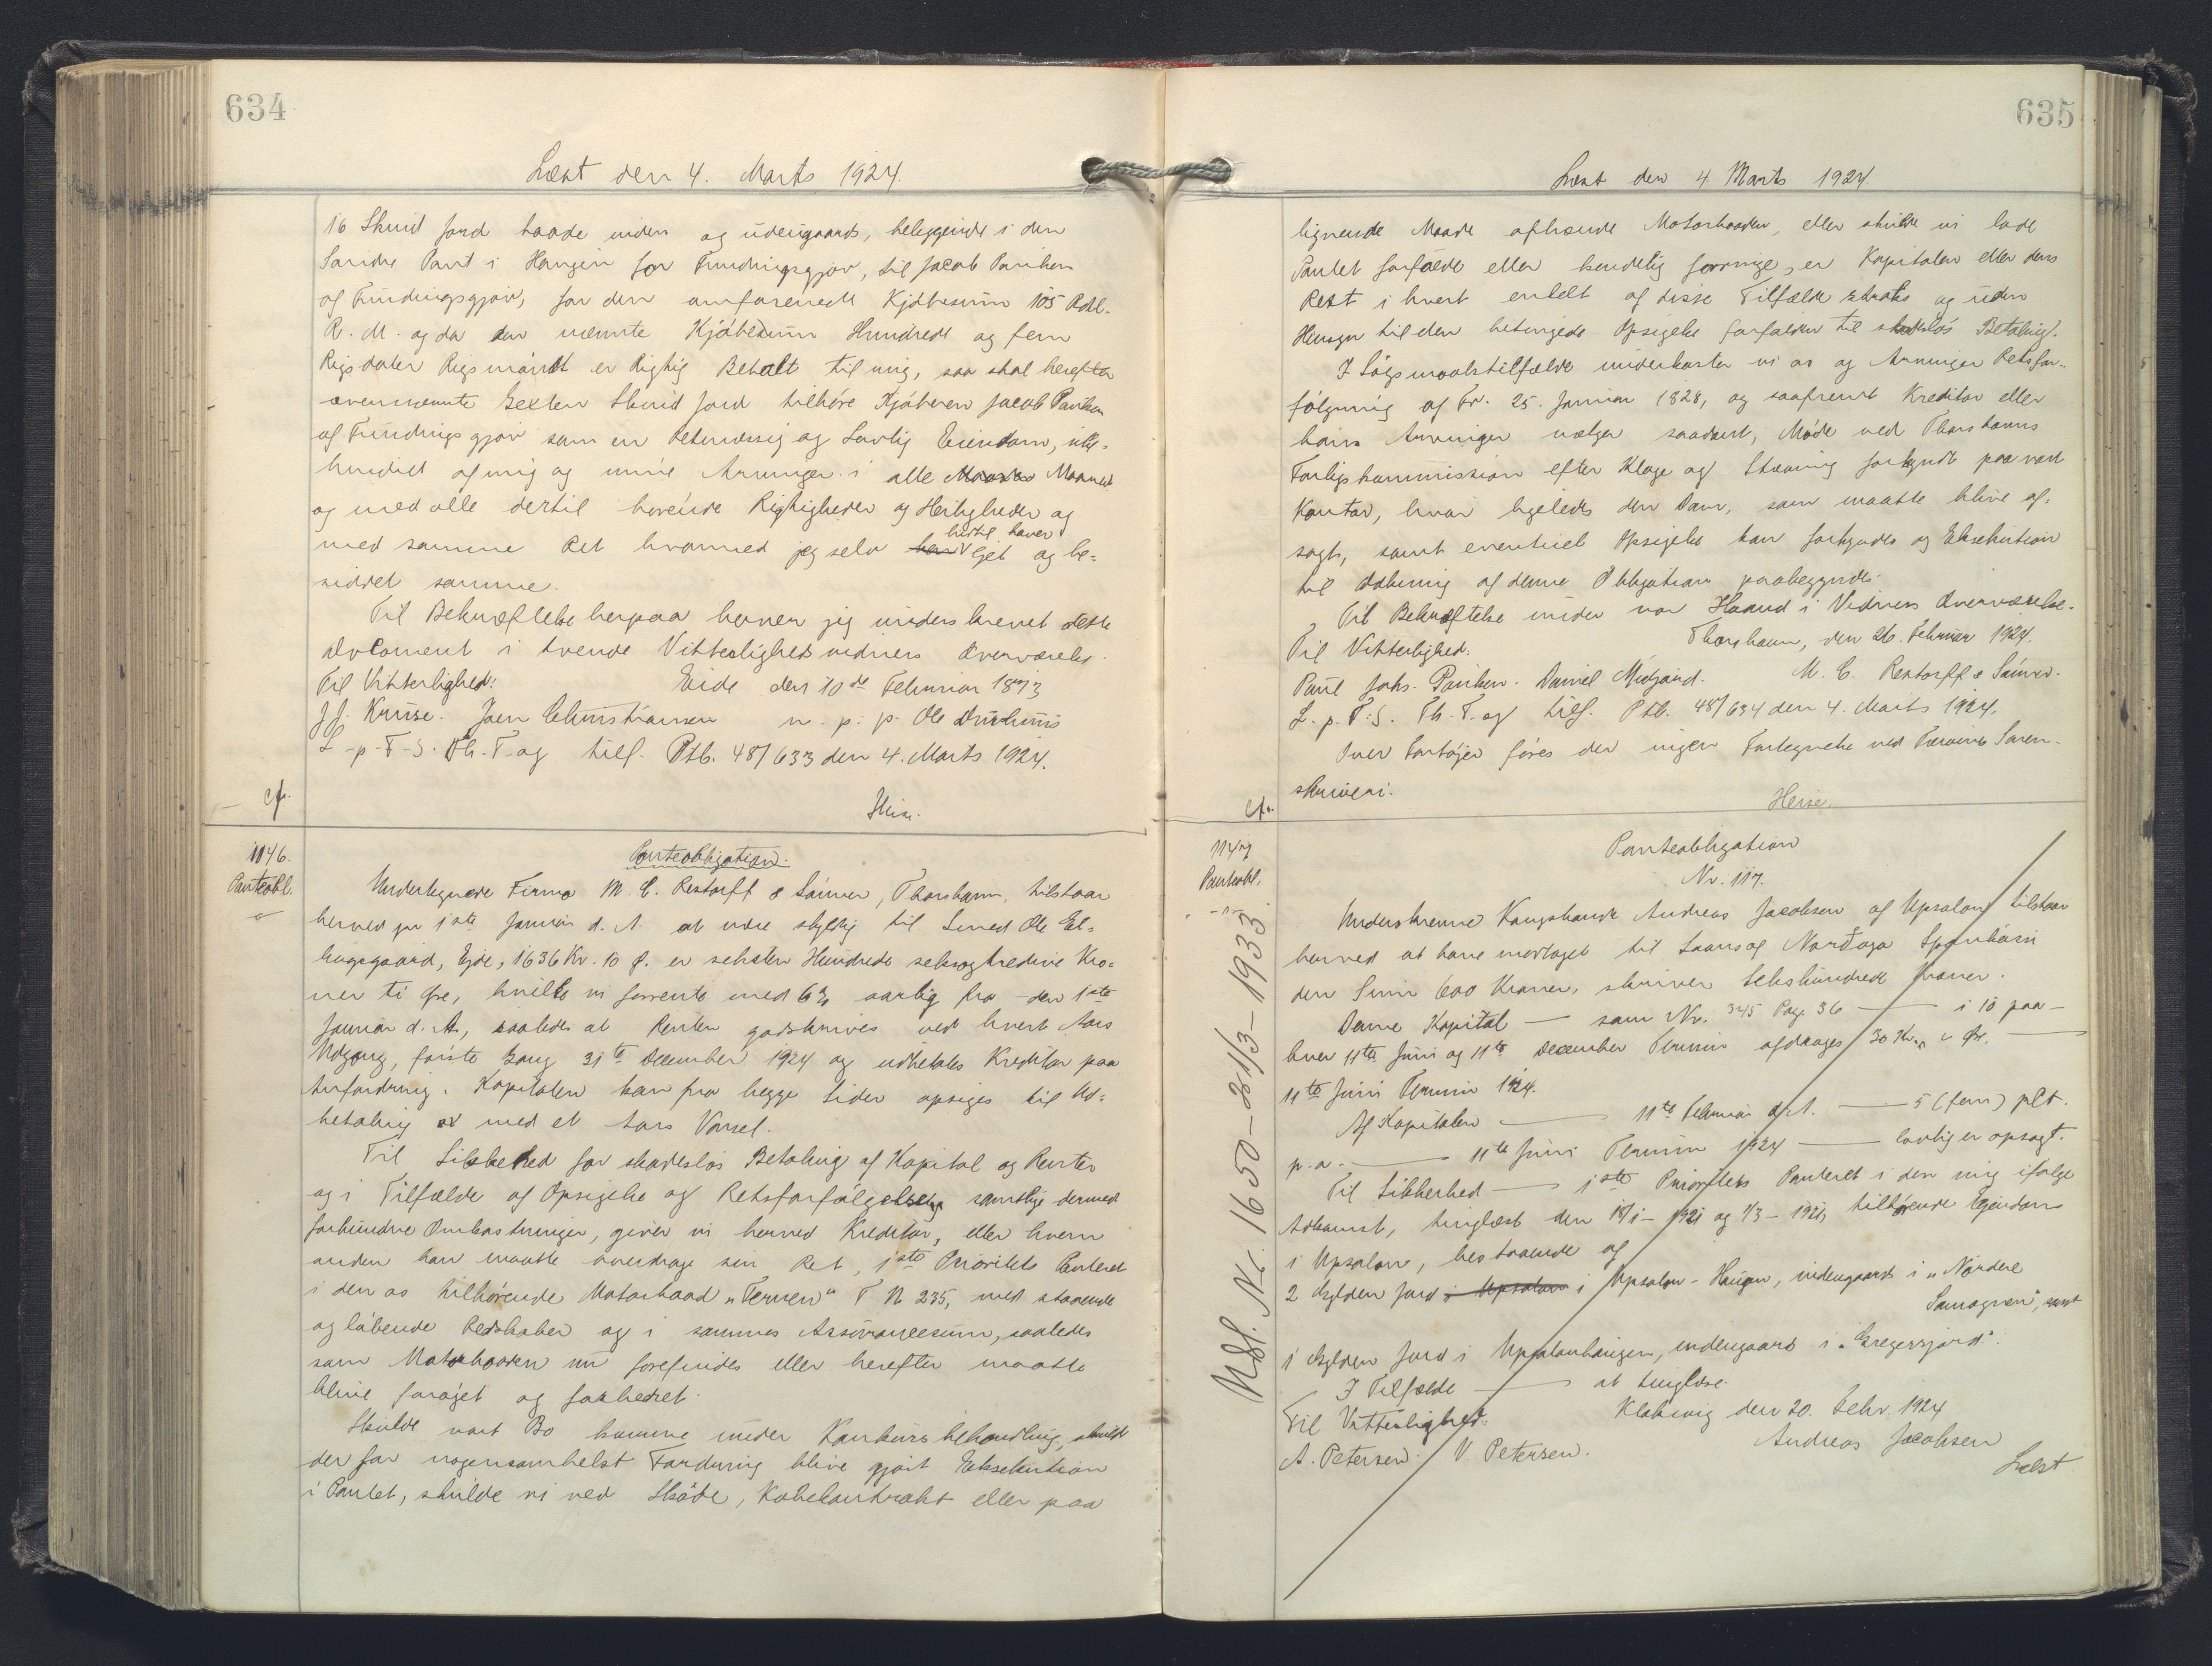 634
Læst den 4. Marts 1924.
16 Skind Jord baade inden og udengaards, beliggende i den
Søndre Part i Haugen for Fundingsgjov, til Jacob Poulsen
af Fundingsgjov, for den omforenede Kjöbesum 105 Rdl.
R. M. og da den nævnte Kjöbesum Hundrede og fem
Rigsdaler Rigsmöndt er Rigtig Betalt til mig, saa skal herefter
ovennævnte Sexten Skind Jord tilhöre Kjöberen Jacob Poulsen
af Fundingsgjov som en Retmæssig og Lovlig Eiendom, uhe-
hindret af mig og mine Arvinger i alle Maader
og med alle dertil hørende Rigtigheder og Herligheder og
med samme Ret hvormed jeg selv hidtil haver Ejet og be-
siddet samme.
Til Bekræftelse herpaa haver jeg underskrevet dette
Document i tvende Vitterligheds vidners Overværelse.
Til Vitterlighed: Eide den 10de Februar 1873
J. J. Kruse. Joen Christiansen m. p. p. Ole
L-p-T-S. Th. T. og tilf. Ptb. 48/633 den 4. Marts 1924.
cfr.
Heise.
1146.
Panteobl.
Panteobligation.
Undertegnede Firma M. C. Restorff & Sönner, Thorshavn, tilstaar
herved pr 1ste Januar d. A. at være skyldig til Smed Ole El-
lugsgaard, Ejde, 1636 Kr. 10 Ø. er seksten Hundrede seksogtredive Kro-
ner ti Øre, hvilke vi forrente med 6% aarlig fra den 1ste
Januar d. A., saaledes at Renten godskrives ved hvert Aars
Udgang, förste Gang 31te December 1924 og udbetales Kreditor paa
Anfordring. Kapitalen kan fra begge Sider opsiges til Ud-
betaling med et Aars Varsel.
Til Sikkerhed for skadeslös Betaling af Kapital og Renter
og i Tilfælde af Opsigelse og Retsforfölgelse samtlige dermed
forbundne Omkostninger, giver vi herved Kreditor, eller hvem
anden han maatte overdrage sin Ret, 1ste Prioritets Panteret
i den os tilhörende Motorbaad „Ternen" T N 235, med staaende
og löbende Redskaber og i sammes Assurancesum, saaledes
som Motorbaaden nu forefindes eller herefter maatte
blive foröget og forbedret.
Skulde vort Bo komme under Konkursbehandling, skulde
der for nogensomhelst Fordring blive gjort Eksekution
i Pantet, skulde vi ved Sköde, Köbekontrakt eller paa
635
Læst den 4 Marts 1924
lignende Maade afhænde Motorbaaden, eller skulde vi lade
Pantet forfalde eller kendelig forringe, er Kapitalen eller dens
Rest i hvert enkelt af disse Tilfælde straks og uden
Hensyn til den betingede Opsigelse forfalden til skadeslös Betaling.
I Sögsmaalstilfælde underkaster vi os og Arvinger Retsfor-
fölgning af Fr. 25. Januar 1828, og saafremt Kreditor eller
hans Arvinger vælger saadant, Möde ved Thorshavns
Forligskommission efter Klage og Stævning forkyndt paa vort
Kontor, hvor ligeledes den Dom, som maatte blive af-
sagt, samt eventuel Opsigelse kan forkyndes og Eksekution
til Udtömning af denne Obligation paabegyndes.
Til Bekræftelse under vor Haand i Vidners Overværelse.
Til Vitterlighed: Thorshavn, den 26. Februar 1924.
Paul Johs. Poulsen. Daniel Midjord. M. C. Restorff & Sönner.
L. p. T. S. Th. T. og tilf. Ptb. 48/634 den 4. Marts 1924.
Over Fartöjer föres der ingen Fortegnelse ved Færöernes Soren-
skriveri.
cfr.
Heise
1147
Panteobl.
Udsl. Nr. 1650 - 21/3 - 1933.
Panteobligation
Nr. 117.
Underskrevne Kongsbonde Andreas Jacobsen af Upsalon tilstaar
herved at have modtaget til Laans af Norðoya Sparikassi
den Sum 600 Kroner, skriver Sekshundrede Kroner.
Denne Kapital — som Nr. 345 Pag. 36 — i 10 paa —
hver 11te Juni og 11te December Termin afdrages 30 Kr. „ Ør. —
11te Juni Termin 1924.
Af Kapitalen — 11te Februar d. A. — 5 (fem) pCt.
p. a. — 11te Juni Termin 1924 — lovlig er opsagt.
Til Sikkerhed — 1ste Prioritets Panteret i den mig ifölge
Adkomst, tinglæst den 19/1 - 1921 og 1/3 - 1921, tilhörende Ejendom
i Upsalon, bestaaende af
2 Gylden Jord i Upsalon i Upsalon-Haugen, indengaards i „Nordere
, samt
1 Gylden Jord i Upsalonhaugen, indengaards i „Gregersgjord".
I Tilfælde — at tinglæse.
Til Vitterlighed: Klaksvig den 20. Febr. 1924
A. Petersen. V. Petersen. Andreas Jacobsen
Læst